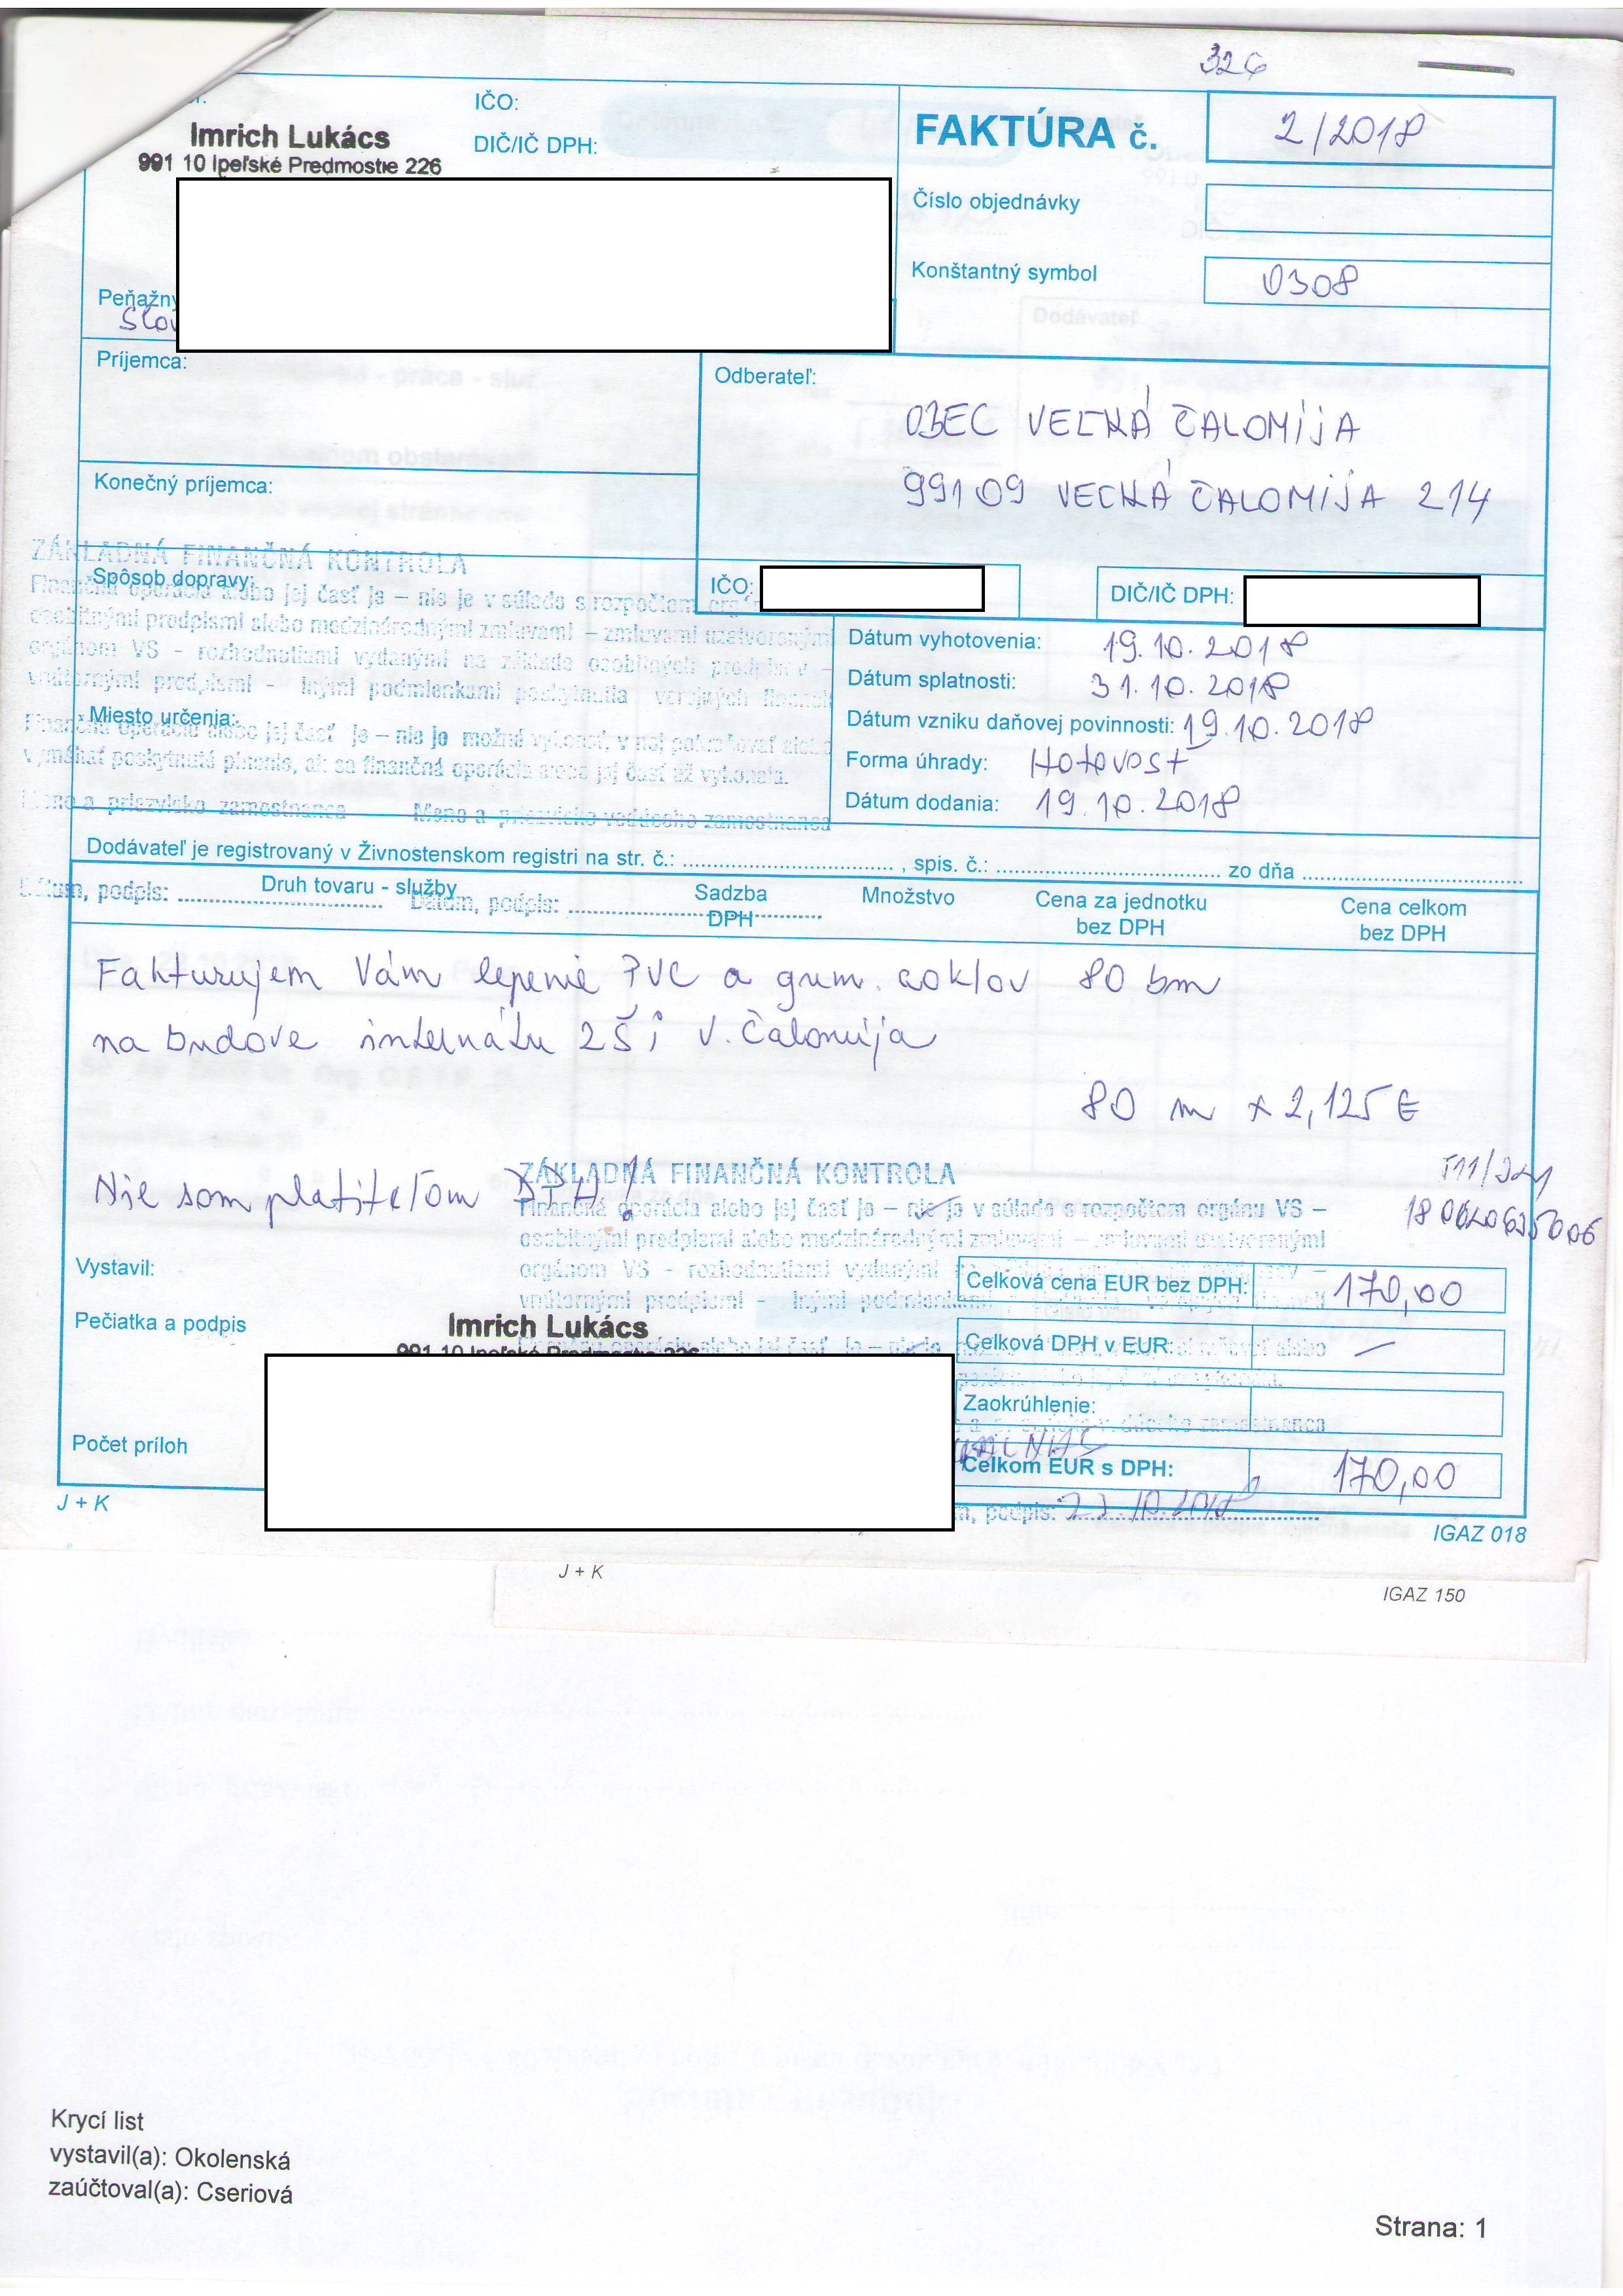 326
IČO:
Imrich Lukács
DIČ/IČ DPH:
991 10 Ipeľské Predmostie 226
FAKTÚRA č. 2/2018
Číslo objednávky
Konštantný symbol 0308
Peňažný
Slov
Príjemca:
Odberateľ:
OBEC VEĽKÁ ČALOMIJA
99109 VEĽKÁ ČALOMIJA 214
Konečný príjemca:
IČO:
DIČ/IČ DPH:
ZÁKLADNÁ FINANČNÁ KONTROLA
Spôsob dopravy:
Finančná operácia alebo jej časť je – nie je v súlade s rozpočtom
osobitnými predpismi alebo medzinárodnými zmluvami – zmluvami uzatvorenými
orgánom VS - rozhodnutiami vydanými na základe osobitných predpisov –
vnútornými predpismi - inými podmienkami poskytnutia verejných financií
Miesto určenia:
Finančná operácia alebo jej časť je – nie je možné vykonať, v nej pokračovať alebo
vymáhať poskytnuté plnenie, ak sa finančná operácia alebo jej časť už vykonala.
Meno a priezvisko zamestnanca Meno a priezvisko vedúceho zamestnanca
Dátum vyhotovenia: 19.10.2018
Dátum splatnosti: 31.10.2018
Dátum vzniku daňovej povinnosti: 19.10.2018
Forma úhrady: Hotovosť
Dátum dodania: 19.10.2018
Dodávateľ je registrovaný v Živnostenskom registri na str. č.: , spis. č.: zo dňa
Dátum, podpis: Dátum, podpis:
Druh tovaru - služby Sadzba DPH Množstvo Cena za jednotku bez DPH Cena celkom bez DPH
Fakturujem Vám lepenie PVC a gum. soklov 80 bm
na budove internátu ZŠI V. Čalomija
80 m x 2,125 €
Nie som platiteľom DPH!
ZÁKLADNÁ FINANČNÁ KONTROLA
Finančná operácia alebo jej časť je – nie je v súlade s rozpočtom orgánu VS –
osobitnými predpismi alebo medzinárodnými zmluvami – zmluvami uzatvorenými
orgánom VS - rozhodnutiami vydanými
vnútornými predpismi - inými podmienkami
Vystavil:
Celková cena EUR bez DPH: 170,00
Pečiatka a podpis
Imrich Lukács
991 10 Ipeľské Predmostie 226
Celková DPH v EUR: –
Zaokrúhlenie:
Počet príloh
Celkom EUR s DPH: 170,00
podpis:
J + K
IGAZ 018
J + K
IGAZ 150
Krycí list
vystavil(a): Okolenská
zaúčtoval(a): Cseriová
Strana: 1